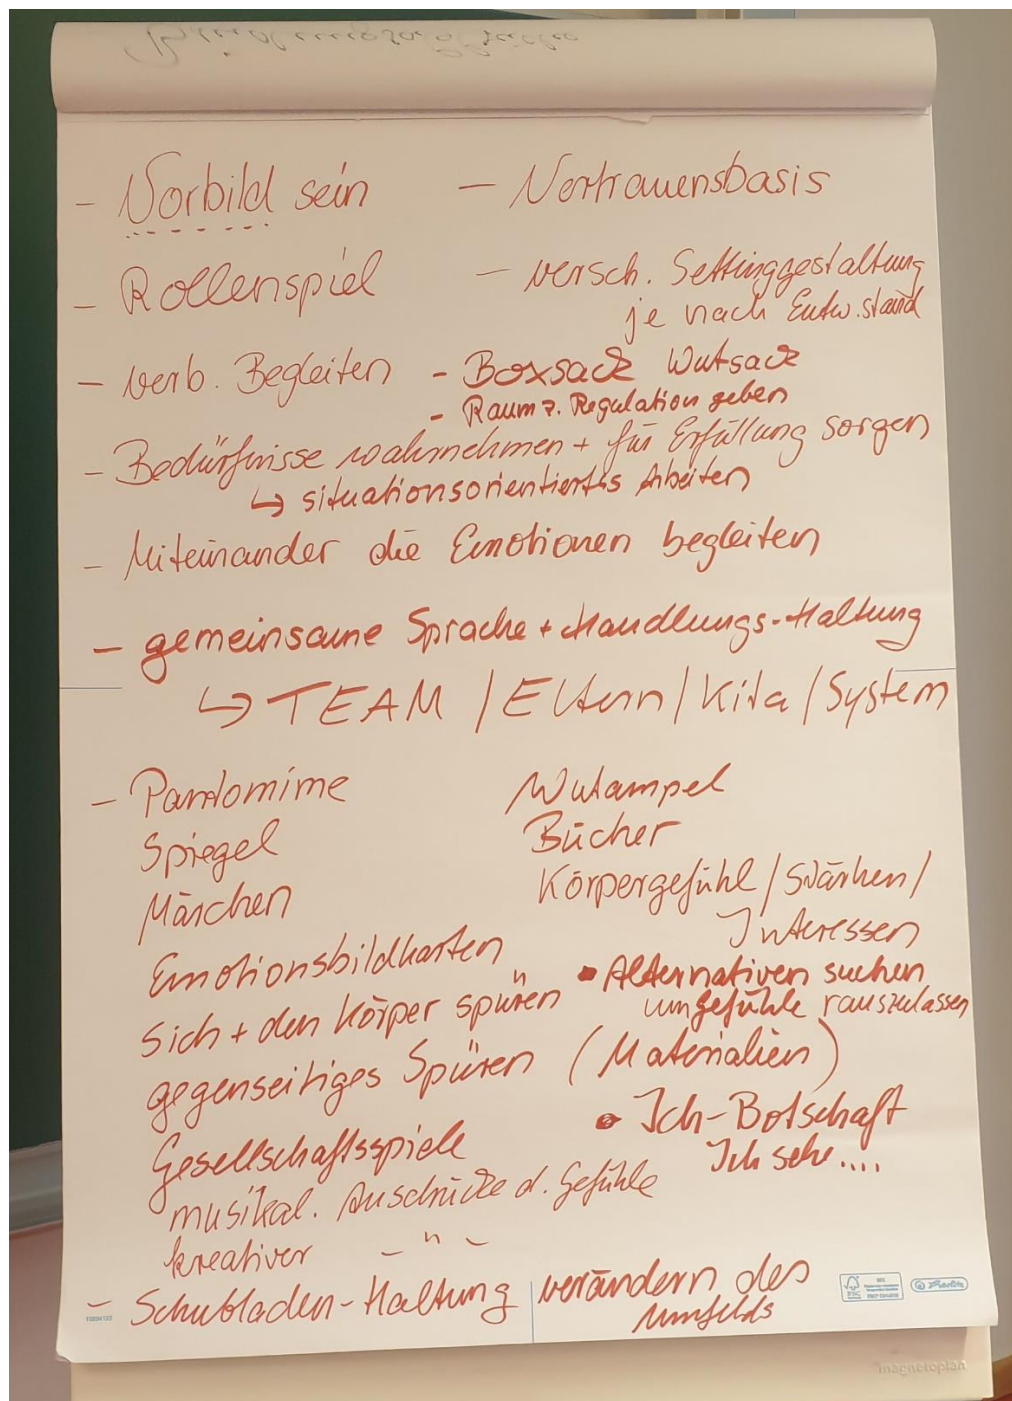 - Vorbild sein
- Vertrauensbasis
- Rollenspiel
- versch. Settinggestaltung
je nach Entw.stand
- verb. Begleiten
- Boxsack Wutsack
- Raum z. Regulation geben
- Bedürfnisse wahrnehmen + für Erfüllung sorgen
↳ situationsorientiertes Arbeiten
- Miteinander die Emotionen begleiten
- gemeinsame Sprache + Handlungs-Haltung
↳ TEAM / Eltern / Kita / System
- Pantomime
Spiegel
Märchen
Emotionsbildkarten
Sich + den Körper spüren
gegenseitiges Spüren
Gesellschaftsspiele
musikal. Ausdrücke d. Gefühle
kreativer - " -
Wutampel
Bücher
Körpergefühl / Stärken /
Interessen
• Alternativen suchen
um Gefühle rauszulassen
(Materialien)
• Ich-Botschaft
Ich sehe....
- Schubladen-Haltung verändern des
Umfelds
FSC
magnetoplan